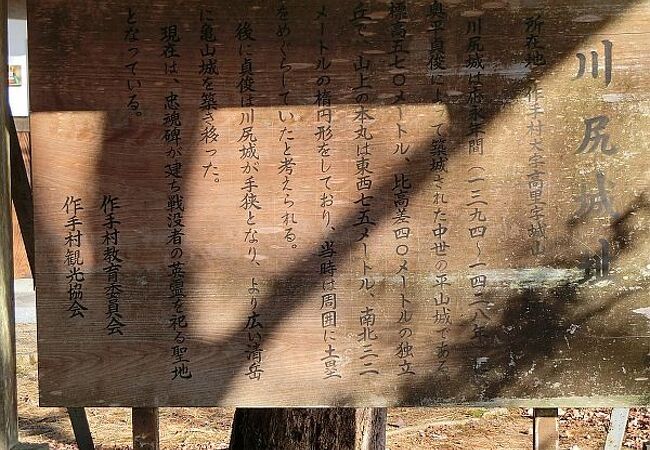 川尻城
所在地 作手村大字高里字城山
川尻城は応永年間（一三九四～一四二八年）
奥平貞俊によって築城された中世の平山城である
標高五七〇メートル、比高差四〇メートルの独立
丘で、山上の本丸は東西七五メートル、南北三二
メートルの楕円形をしており、当時は周囲に土塁
をめぐらしていたと考えられる。
後に貞俊は川尻城が手狭となり、より広い清岳
に亀山城を築き移った。
現在は、忠魂碑が建ち戦没者の英霊を祀る聖地
となっている。
作手村教育委員会
作手村観光協会